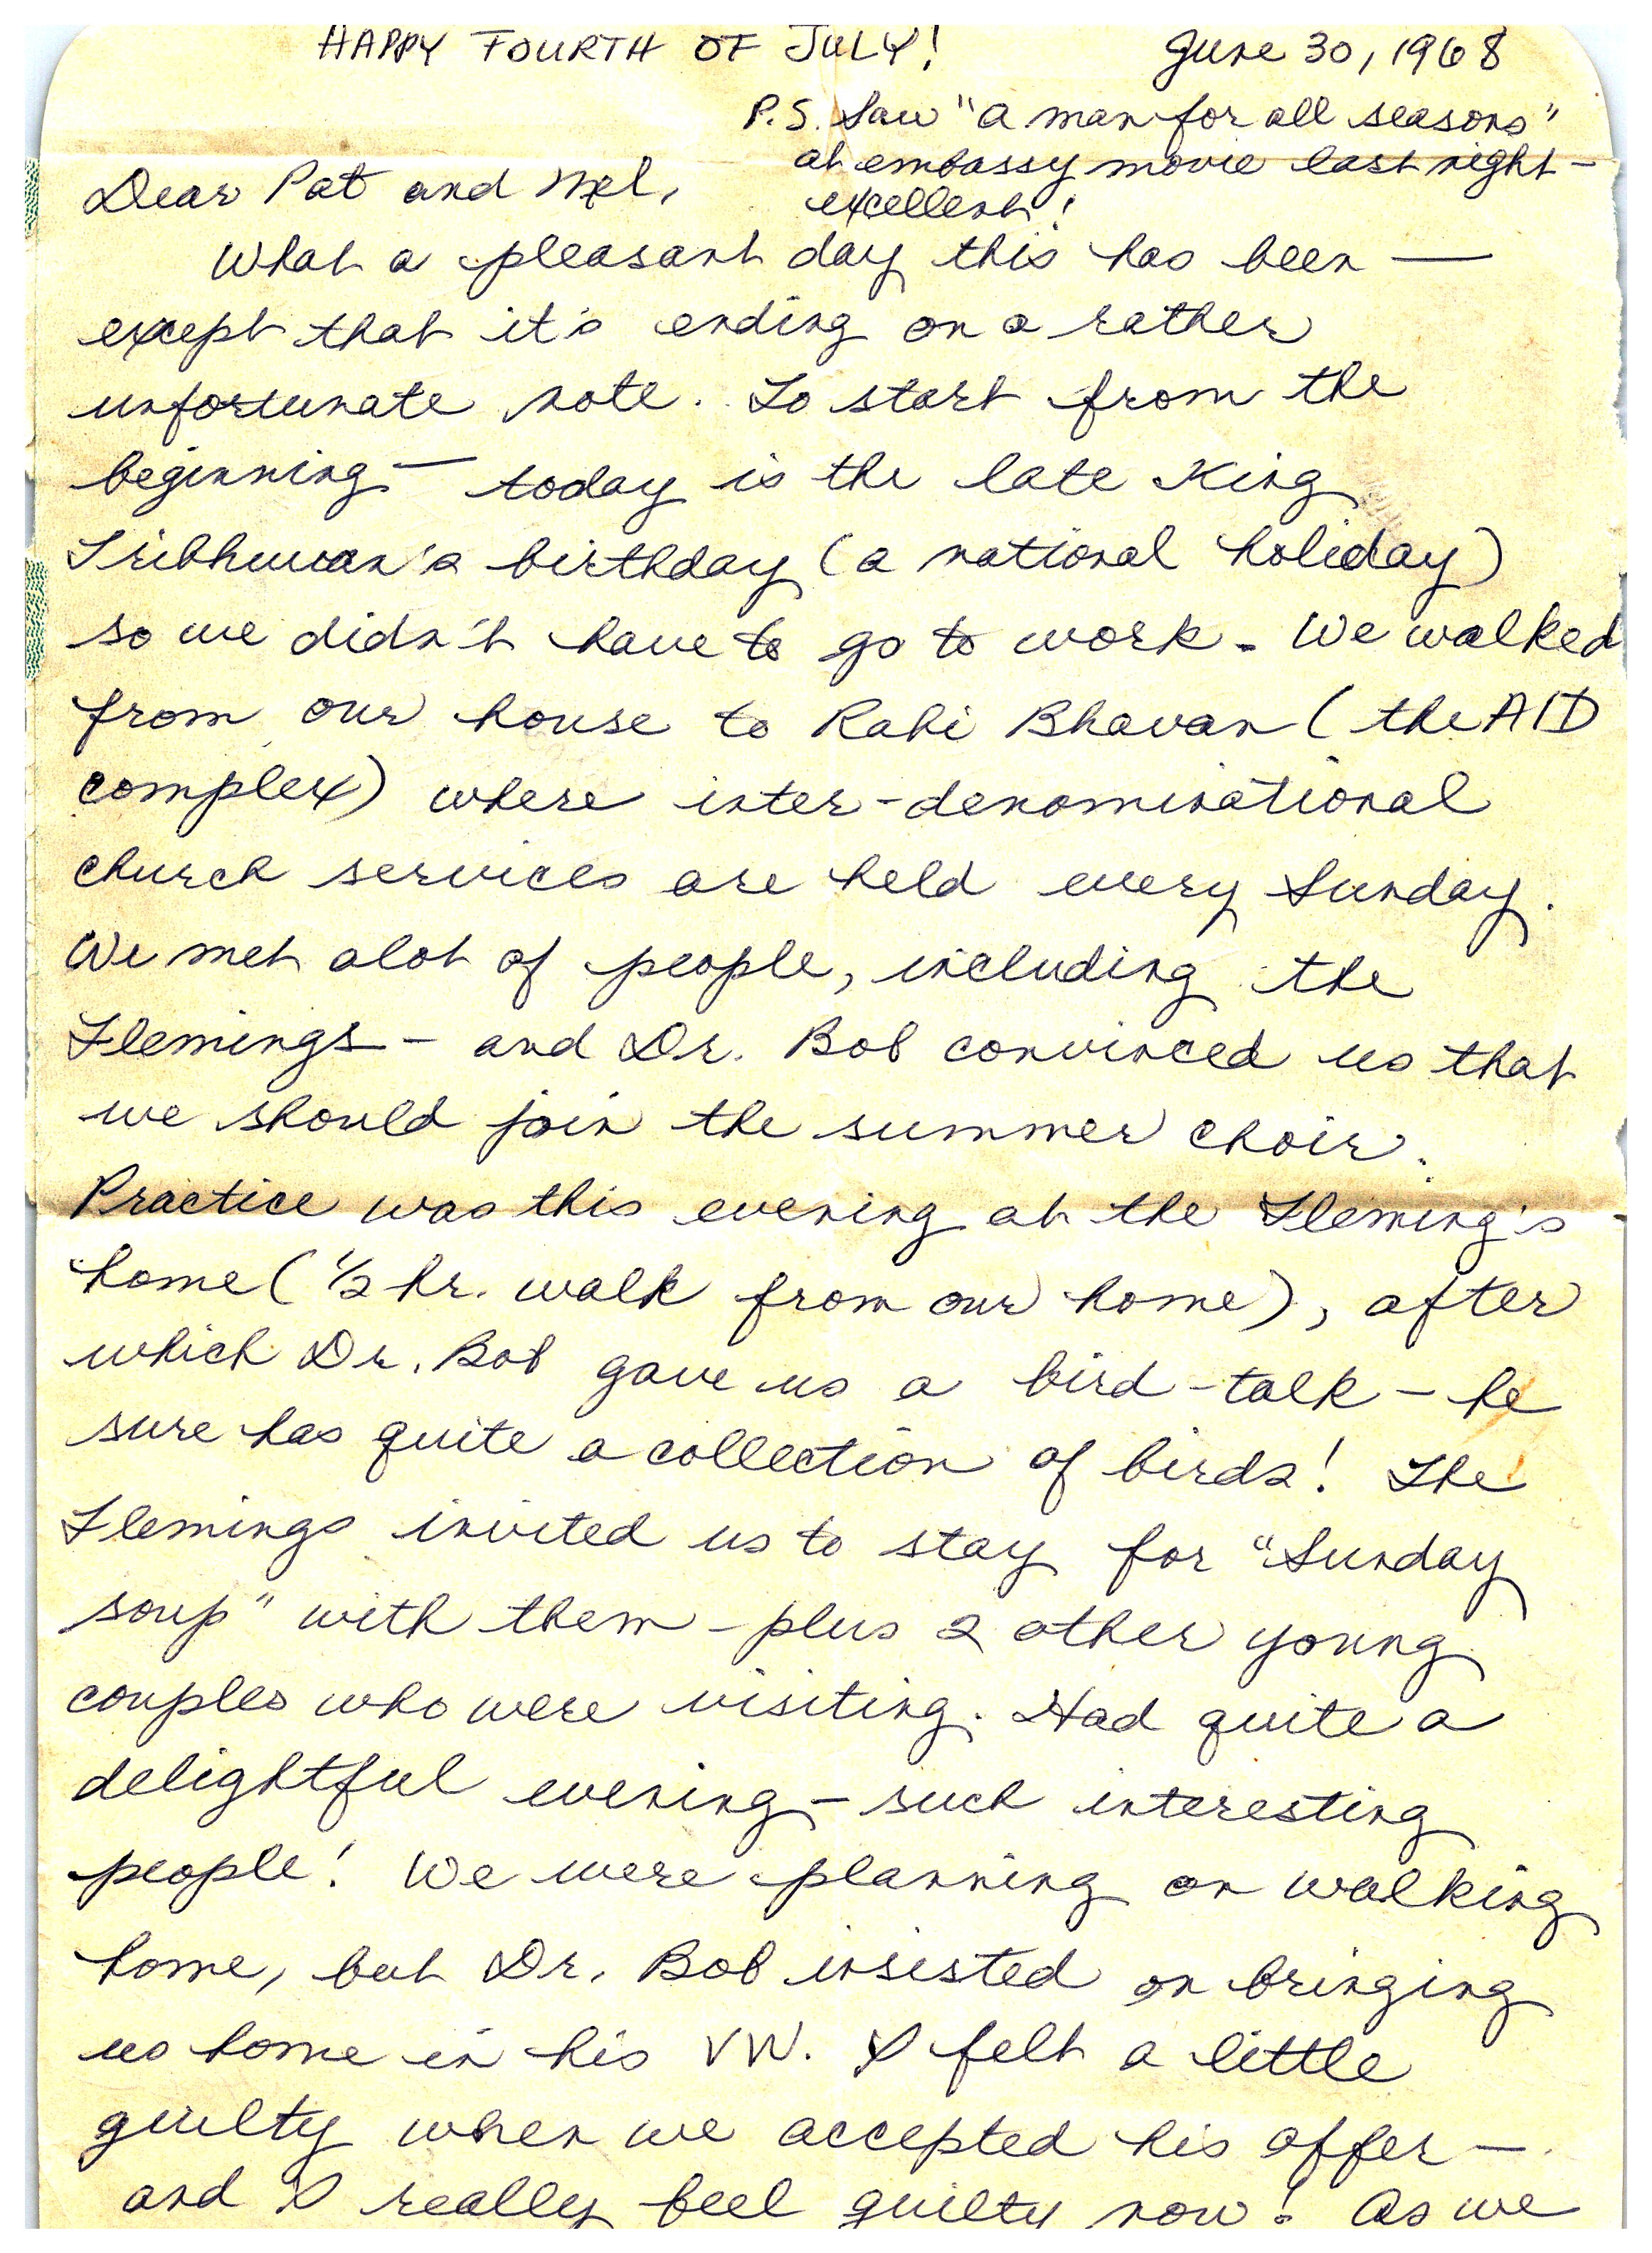 HAPPY FOURTH OF JULY! June 30, 1968
P.S. Saw "A man for all seasons"
at embassy movie last night –
excellent!
Dear Pat and Mel,
What a pleasant day this has been —
except that it's ending on a rather
unfortunate note. To start from the
beginning — today is the late King
Tribhuvan's birthday (a national holiday)
so we didn't have to go to work. We walked
from our house to Rabi Bhavan (the AID
complex) where inter-denominational
church services are held every Sunday.
We met alot of people, including the
Flemings – and Dr. Bob convinced us that
we should join the summer choir.
Practice was this evening at the Fleming's
home (1/2 hr. walk from our home), after
which Dr. Bob gave us a bird-talk – he
sure has quite a collection of birds! The
Flemings invited us to stay for "Sunday
soup" with them – plus 2 other young
couples who were visiting. Had quite a
delightful evening – such interesting
people! We were planning on walking
home, but Dr. Bob insisted on bringing
us home in his VW. I felt a little
guilty when we accepted his offer —
and I really feel guilty now! As we